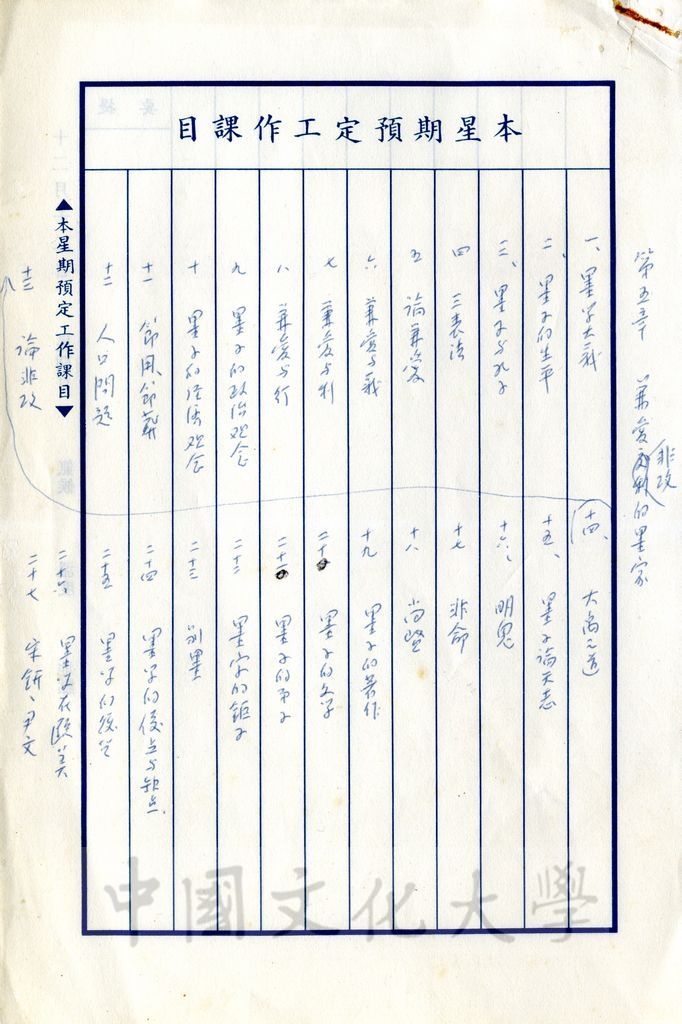 本星期預定工作課目
第五章 兼愛非攻的墨家
一、墨學大義
二、墨子的生平
三、墨子与孔子
四 三表法
五 論兼愛
六 兼愛与義
七 兼愛与利
八 兼愛与行
九 墨子的政治观念
十 墨子的經濟观念
十一 節用節葬
十二 人口問題
▲本星期預定工作課目▼
十三 論非攻
十四、大禹之道
十五、墨子論天志
十六、明鬼
十七 非命
十八 尚賢
十九 墨子的著作
二十 墨子的文學
二十一 墨子的弟子
二十二 墨家的鉅子
二十三 別墨
二十四 墨學的優点与缺点
二十五 墨学的後世
二十六 墨学在歐美
二十七 宋鈃、尹文
中國文化大學